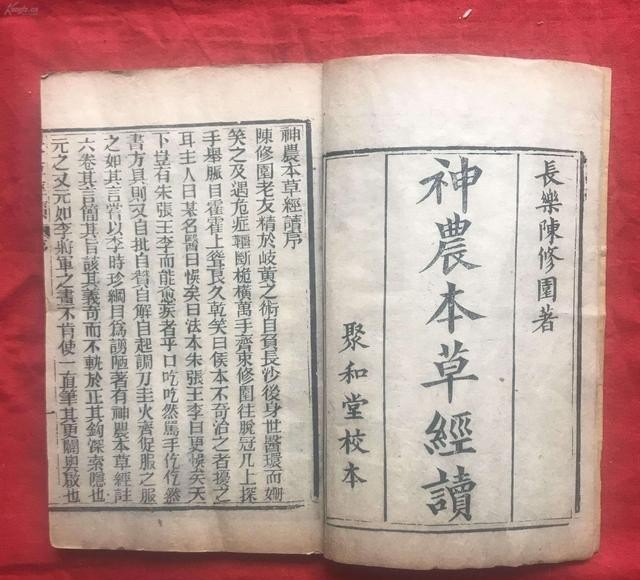 長樂陳修園著
神農本草經讀
聚和堂校本
神農本草經讀序
陳修園老友精於岐黃之術自負長沙後身世醫環而姍
笑之及遇危症輒斷桅橫萬手齊束修園往脫冠几上探
手舉脈目霍霍上聳良久乾笑曰候本不奇治之者擾之
耳主人曰某名醫曰悞矣曰法本朱張王李曰更悞矣天
下豈有朱張王李而能愈疾者乎口吃吃然罵手仡仡然
書方具則又自批自贊自解自起調刀圭火齊促服之服
之如其言嘗以李時珍綱目爲謭陋著有神農本草經註
六卷其言簡其旨該其義奇而不軼於正其鉤深索隱也
元之又元如李將軍之畫不肯使一直筆其更闢奧啟也